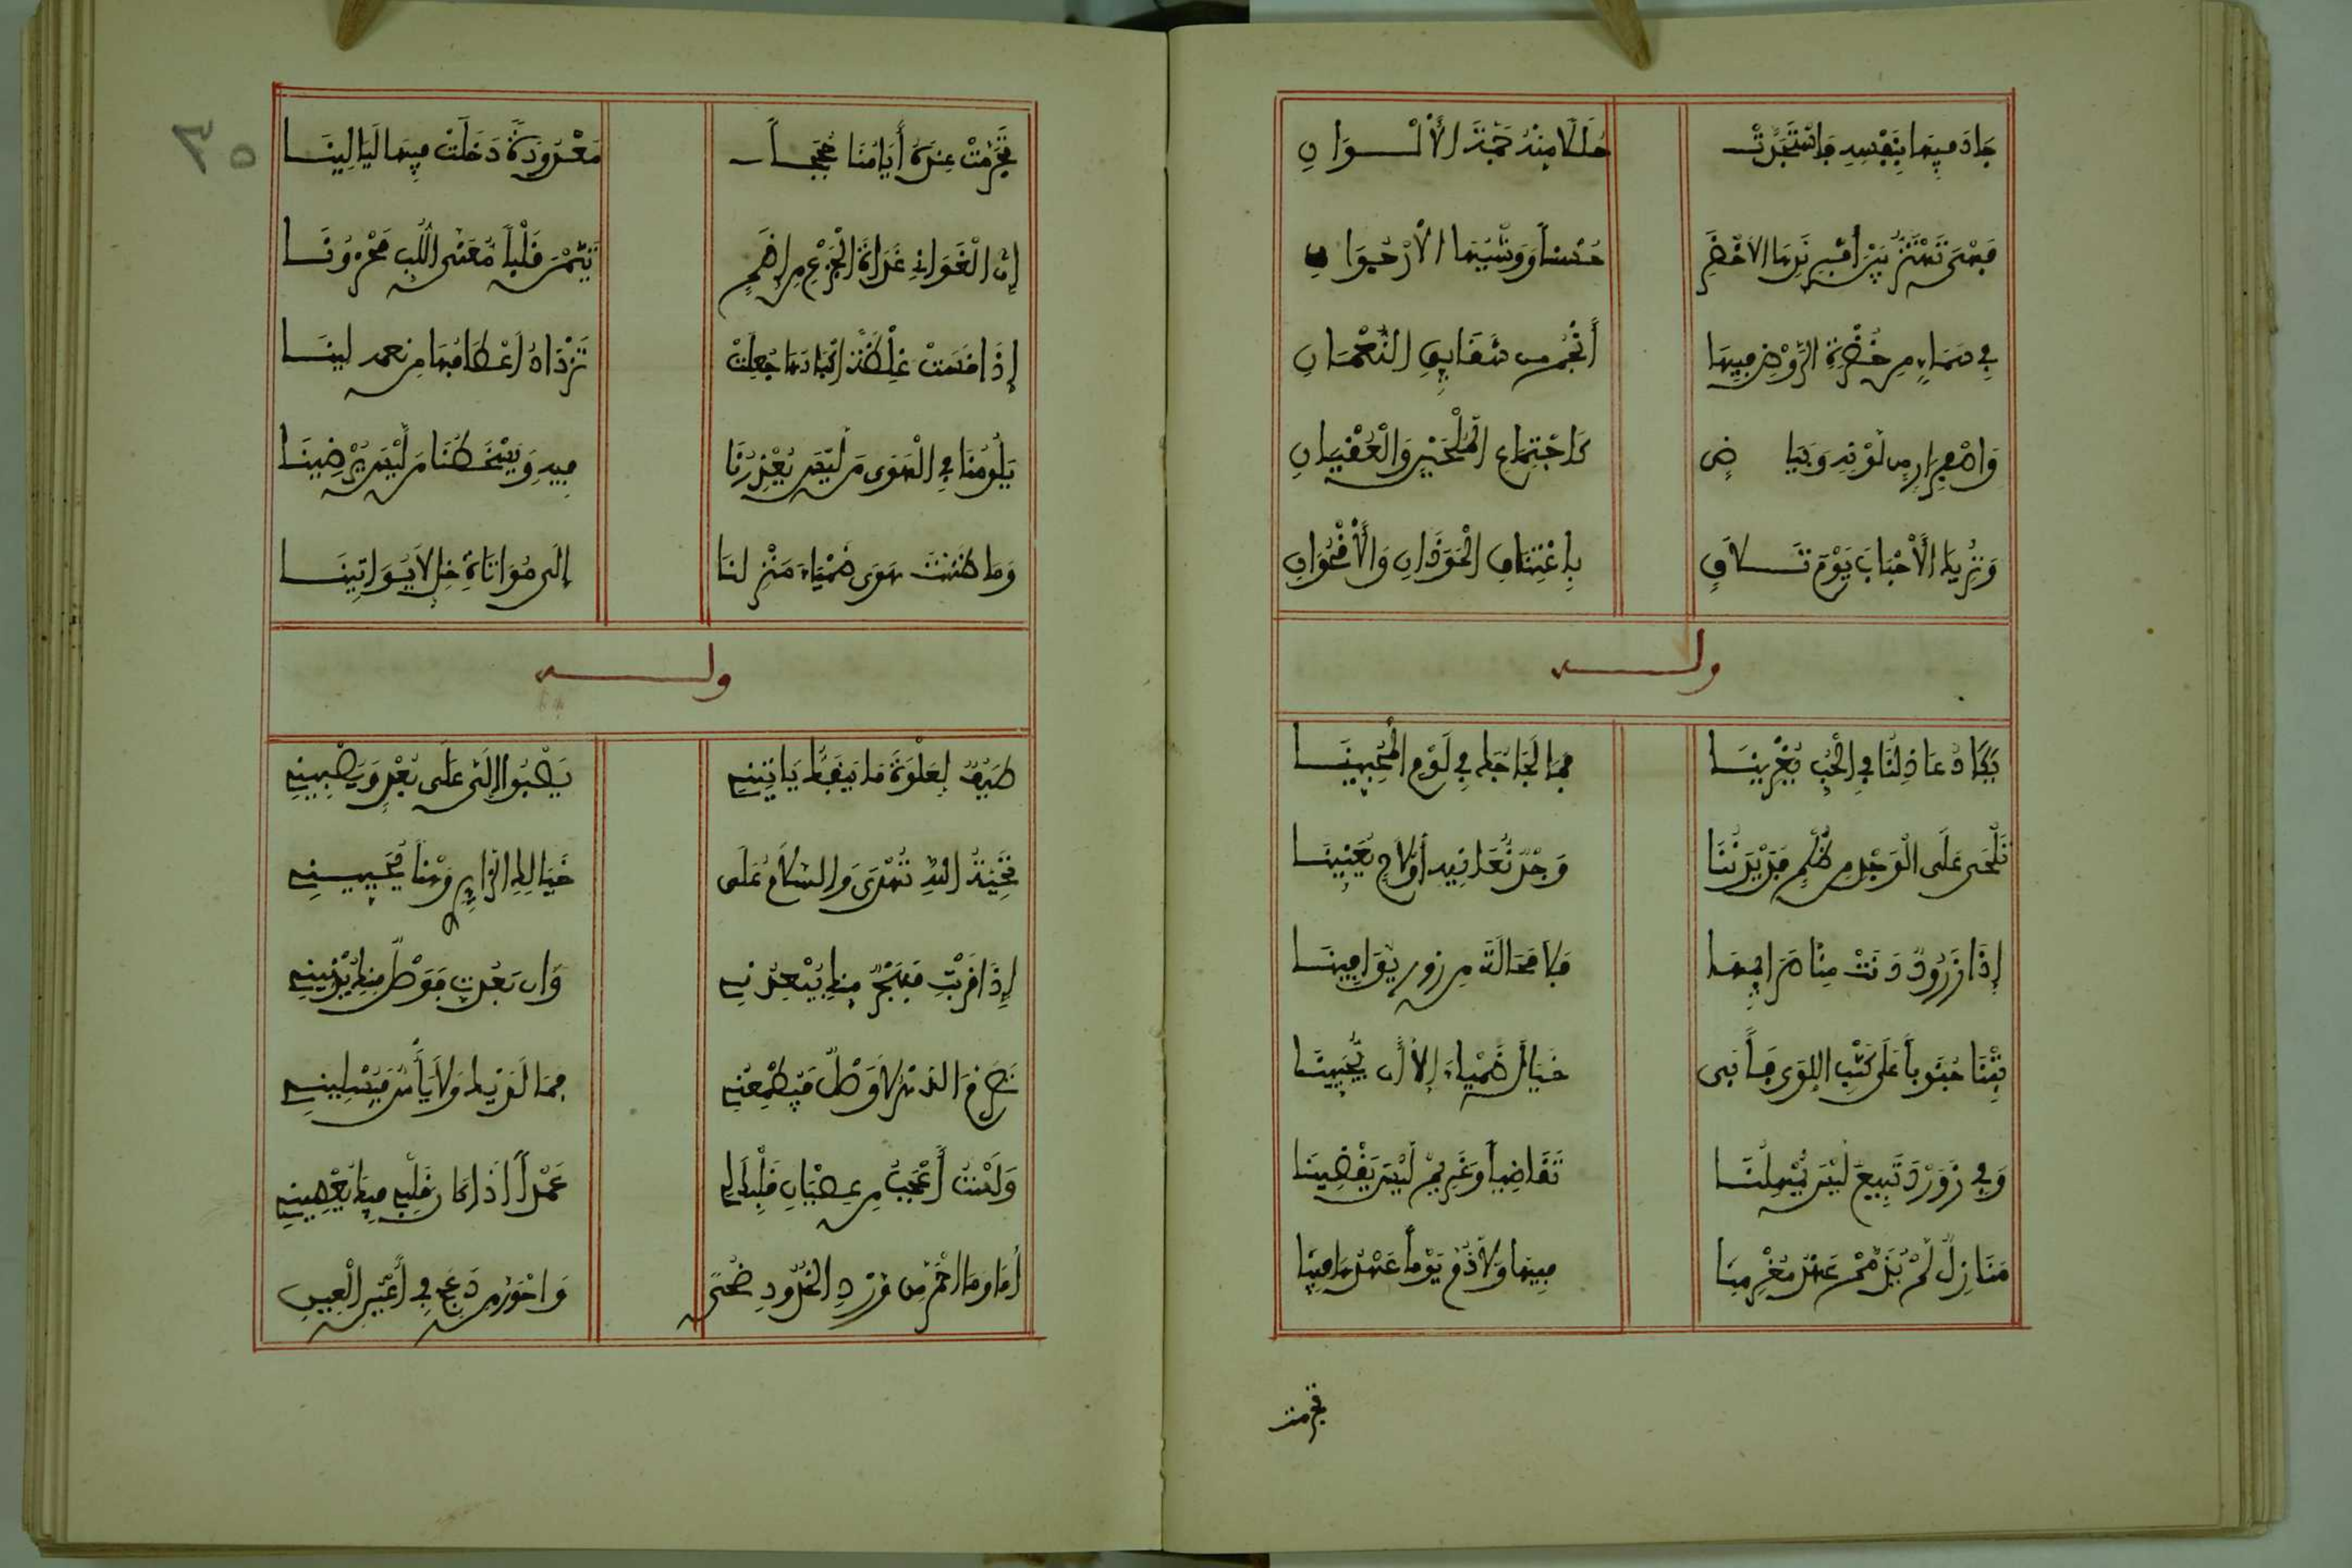 جَادَ فِيهَا بِنَفْسِهِ فَاسْتَجَرَّتْ حُلَلًا مِنْهُ جَمَّةَ الْأَلْـوَانِ
فَهْيَ تَهْتَزُّ بَيْنَ إِفْرِنْدِهَا الْأَخْضَرِ حُسْنًا وَوَشْيِهَا الْأُرْجُوَانِ
فِي سَمَاءٍ مِن خُضْرَةِ الرَّوْضِ فِيهَا أَنْجُمٌ مِن شَقَايِقِ النُّعْمَانِ
وَاصْفِرَارٍ مِن لَوْنِهِ وَبَيَاضٍ كَاجْتِمَاعِ اللُّجَيْنِ وَالْعِقْيَانِ
وَتُرِيكَ الْأَحْبَابَ يَوْمَ تَـلَاقٍ بِاعْتِنَاقِ الْحَوْذَانِ وَالْأُقْحُوَانِ
ولـه
يَكَادُ عَاذِلُنَا فِي الْحُبِّ يُغْرِينَـا فَمَا لَجَاجُكَ فِي لَوْمِ الْمُحِبِّينَـا
نُلْحَى عَلَى الْوَجْدِ مِن ظُلْمٍ فَدَيْدَنُنَا وَجْدٌ نُعَانِيهِ أَوْ لَاحٍ يُعَنِّينَـا
إِذَا زَرُودٌ دَنَتْ مِنَّا صَرَايِمُهَـا فَلَا مَحَالَةَ مِن زور يُوَافِينَـا
بِتْنَا جُنُوباً عَلَى كُثْبِ اللِّوَى فَأَبَى خَيَالُ ظَمْيَاءَ إِلَّا أَن يُحَيِّينَـا
وَفِي زَرَوْدَ تَبِيعٌ لَيْسَ يُمْهِلُنَـا تَقَاضِياً وَغَرِيمٌ لَيْسَ يَقْضِينَـا
مَنَازِلٌ لَمْ يُذَمَّمْ عَهْدُ مُغْرِمِنَا فِيهَا وَلَا ذُمَّ يَوْماً عَهْدُهَا فِينَا
تجرمت
٣٥
تَجَرَّمَتْ عِنْدَهُ أَيَّامُنَا حِجَجـاً مَعْدُودَةً دَخَلَتْ فِيهَا لَيَالِينَـا
إِنَّ الْغَوَانِي غَدَاةَ الْجِزْعِ مِن إِضَمٍ تَيَّمْنَ قَلْباً مُعَنَّى اللُّبِّ مَحْزُونَـا
إِذَا قَسَتْ غِلْظَةً أَكْبَادُهَا جَعَلَتْ تَزْدَادُ أَعْطَافُهَا مِن نعمه لِينَـا
يَلُومُنَا فِي الْهَوَى مَن لَيْسَ يُعْذِرُنَا فِيهِ وَيُسْخِطُنَا مَن لَيْسَ يُرْضِينَـا
وَمَا ظَنَنْتُ هَوَى ظَمْيَاءَ مُنْزِلَنَا إِلَى مُوَاتَاةِ خِلٍّ لَا يُوَاتِينَـا
ولـه
طَيْفٌ لِعَلْوَةَ مَا يَنْفَكُّ يَاتِينِي يَصْبُوا إِلَيَّ عَلَى بُعْدٍ وَيُصْبِينِي
تَحِيَّةَ اللهِ تُهْدَى وَالسَّلَامُ عَلَى خَيَالِكِ الزَّايِرِي وَهْناً يُحَيِّينِي
إِذَا قَرُبْتِ فَهَجْرٌ مِنكِ يُبْعِدُنِي وَإِن بَعُدتِ فَوَصْلٌ مِنكِ يُدْنِينِي
تَصَرَّمَ الدهر لَا وَصْلٌ فَيُطْمِعُنِي فِيمَا لَدَيْكِ وَلَا يَأْسٌ فَيُسْلِينِي
وَلَسْتُ أَعْجَبُ مِن عِصْيَانِ قَلْبِكِ لِي عَمْداً إِذَا كَانَ قَلْبِي فِيكِ يَعْصِينِي
أَمَا وَمَا احْمَرَّ مِن وَرْدِ الْخُدُودِ ضُحًى وَاحْوَرَّ مِن دَعَجٍ فِي أَعْيُنِ الْعِينِ